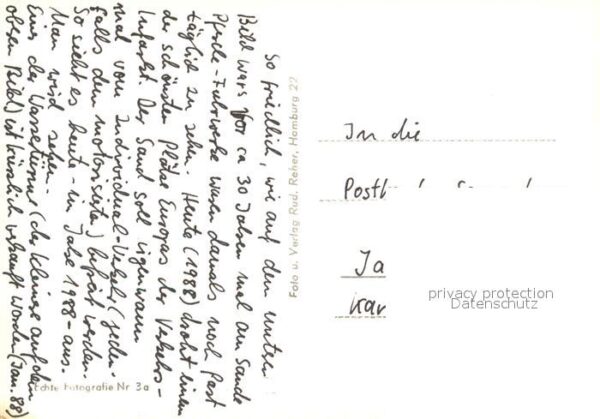 So friedlich, wie auf dem unteren
Bild wars vor ca 30 Jahren mal am Sande
Pferde-Fuhrwerke waren damals noch fast
täglich zu sehen. Heute (1988) droht einen
der schönsten Plätze Europas der Verkehrs-
infarkt. Der Sand soll irgendwann
mal vom Individual-Verkehr (jeden-
falls dem motorisierten) befreit werden.
So sieht es heute - im Jahre 1988 - aus.
Man wird sehen.
Einer der Wassertürme (der kleinere auf dem
oberen Bild) ist kürzlich verkauft worden (Jan. 88)
Echte Fotografie Nr 3a
Foto u. Verlag Rud. Reher, Hamburg 22
In die
Postf
Ja
Kar
privacy protection
Datenschutz